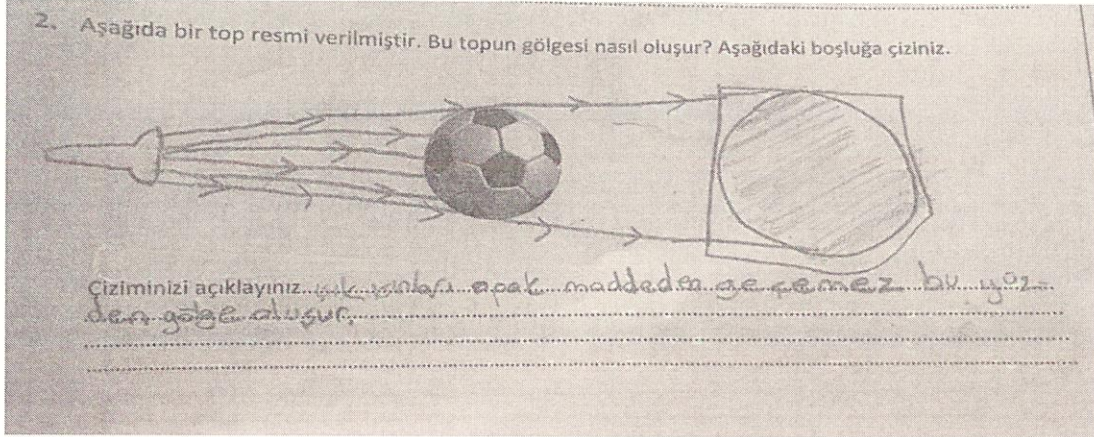 2. Aşağıda bir top resmi verilmiştir. Bu topun gölgesi nasıl oluşur? Aşağıdaki boşluğa çiziniz.
Çiziminizi açıklayınız...ışık ışınları opak maddeden geçemez bu yüz-
den gölge oluşur.